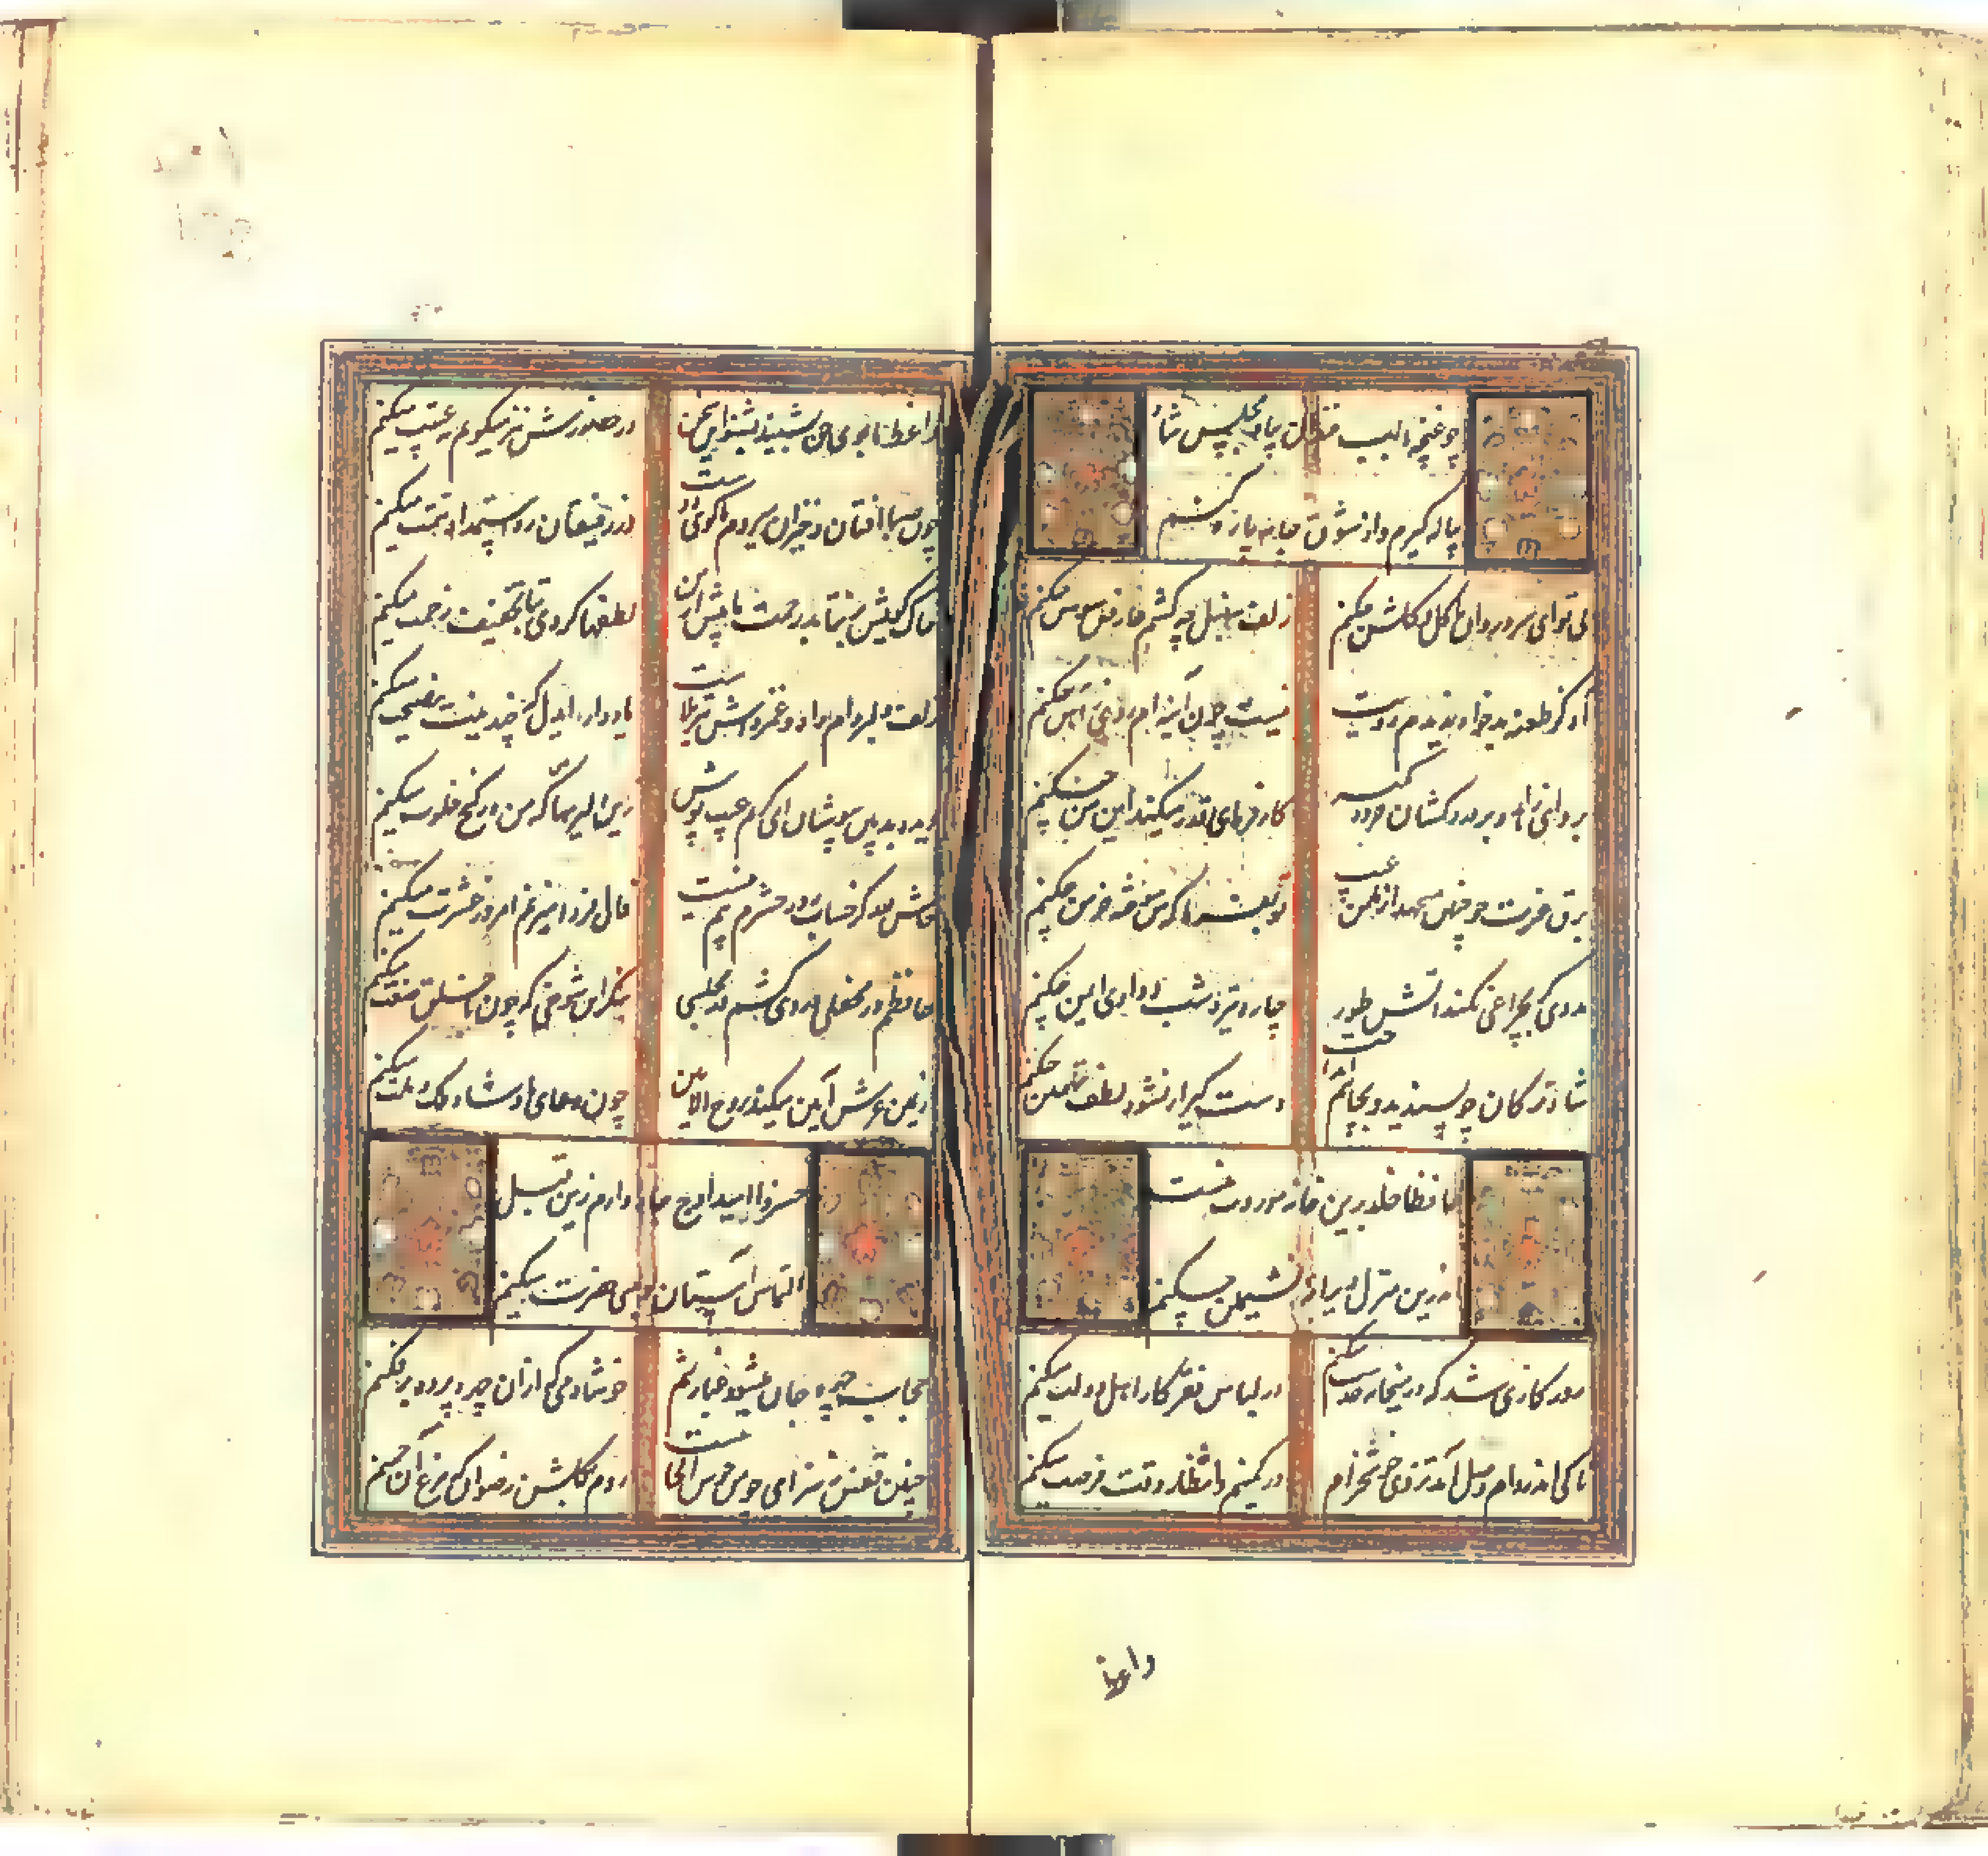 چو غنچه با لب خندان بیاد مجلس شاه
پیاله گیرم و از شوق جامه پاره کنم
بی تو ای سرو روان با گل و گلشن چکنم
زلف سنبل چه کشم عارض سوسن چکنم
آه کز طعنه بدخواه ندیدم رویت
نیست چون آینه ام روی ز آهن چکنم
برو ای زاهد و بر دردکشان خرده مگیر
کارفرمای قدر میکند این من چکنم
برق غیرت چو چنین میجهد از مکمن غیب
تو بفرما که من سوخته خرمن چکنم
مددی گر بچراغی نکند آتش طور
چاره تیره شب وادی ایمن چکنم
شاه ترکان چو پسندید و بچاهم انداخت
دستگیر ار نشود لطف تهمتن چکنم
حافظا خلد برین خانه موروث منست
اندرین منزل ویرانه نشیمن چکنم
روزگاری شد که در میخانه خدمت میکنم
در لباس فقر کار اهل دولت میکنم
تا کی اندر دام وصل آرم تذروی خوش خرام
در کمینم و انتظار وقت فرصت میکنم
واعظ
واعظ ما بوی حق نشنید بشنو این سخن
در حضورش نیز میگویم نه غیبت میکنم
چون صبا افتان و خیزان میروم تا کوی دوست
وز رفیقان ره استمداد همت میکنم
خاک کویت بر نتابد زحمت ما بیش ازین
لطفها کردی بتا تخفیف زحمت میکنم
زلف دلبر دام راه و غمزه اش تیر بلاست
یاد دار ای دل که چندینت نصیحت میکنم
دیده بدبین بپوشان ای کریم عیب پوش
زین دلیریها که من در کنج خلوت میکنم
حاش لله کز حساب روز حشرم بیم نیست
فال فردا میزنم امروز عشرت میکنم
حافظم در محفلی دردی کشم در مجلسی
بنگر این شوخی که چون با خلق صنعت میکنم
از یمین عرش آمین میکند روح الامین
چون دعای پادشاه ملک و ملت میکنم
خسروا امید اوج جاه دارم زین قبل
التماس آستان بوسی حضرت میکنم
حجاب چهره جان میشود غبار تنم
خوشا دمی که ازان چهره پرده برفکنم
چنین قفس نه سزای چو من خوش الحانیست
روم بگلشن رضوان که مرغ آن چمنم